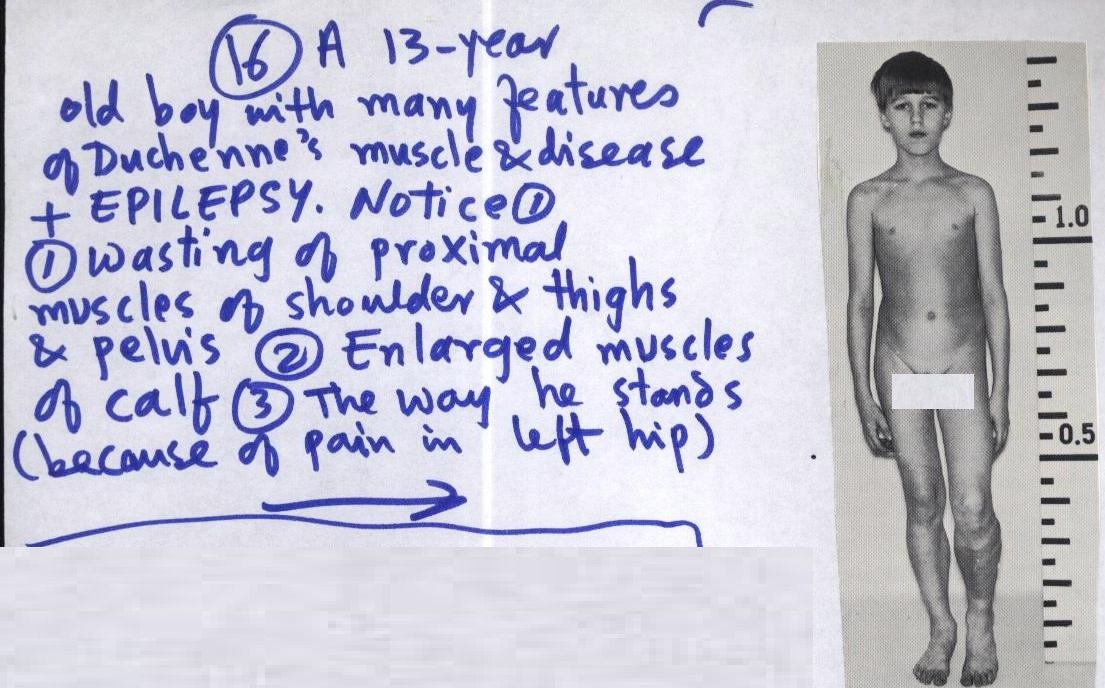 16 A 13-year
old boy with many features
of Duchenne's muscle & disease
+ EPILEPSY. Notice 1
1 Wasting of proximal
muscles of shoulder & thighs
& pelvis 2 Enlarged muscles
of calf 3 The way he stands
(because of pain in left hip)
1.0
0.5